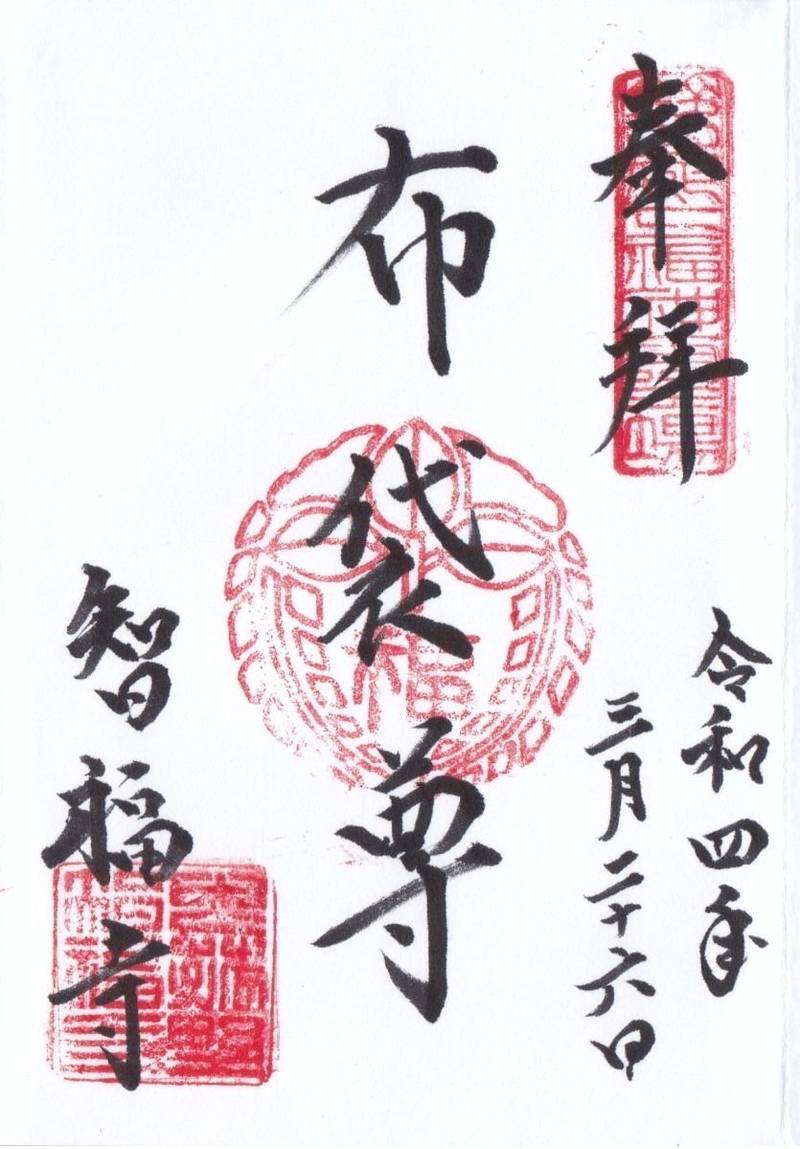 奉拝
令和四年
三月二十六日
布袋尊
福
智福寺